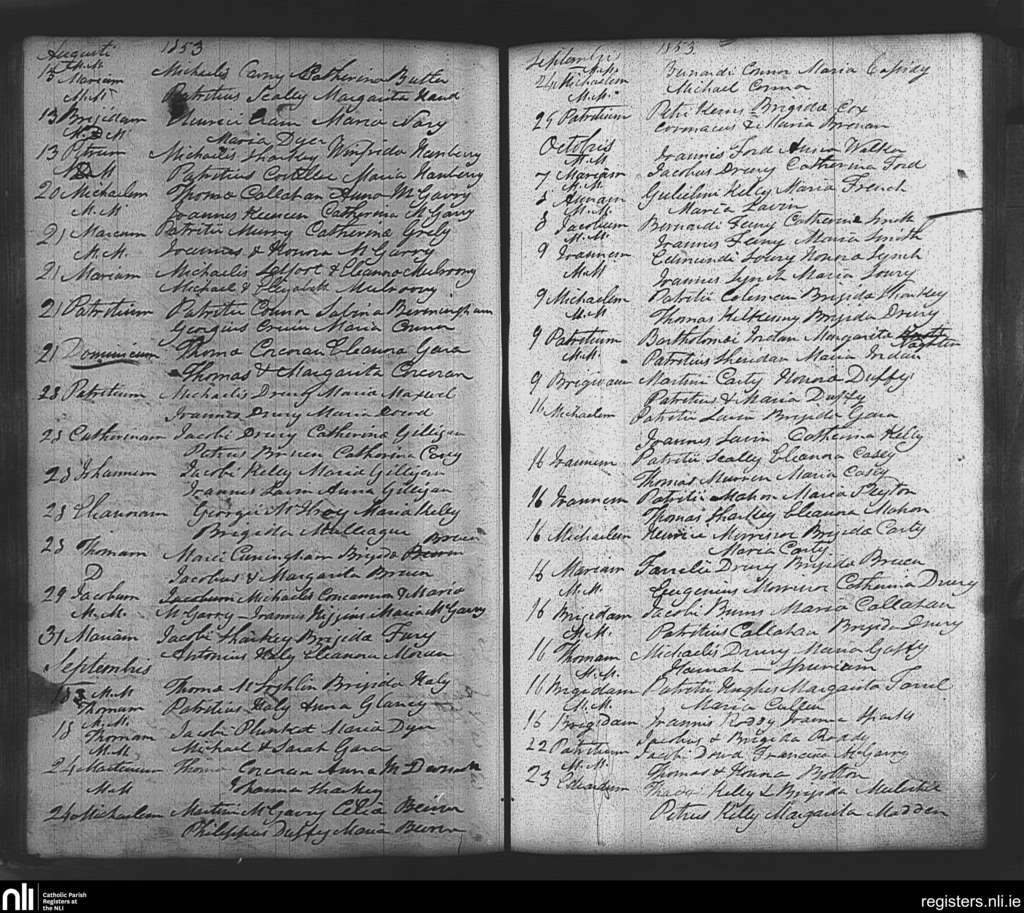 Augusti 1853
M.M
13 Mariam Michaelis Curry Catherina Butler
M.M Patritius Scally Margarita Hand
13 Brigidam Maria Nary
M.D M Maria Dyer
13 Petrum Michaelis Sharkey Winifrida Hanbery
M.D M Patritius Costelloe Maria Hanbery
20 Michaelem Thoma Callahan Anna McGarry
M.M Joannes Catherina McGarry
21 Marcum Patritii Murry Catherina
M.M. Joannes & Honora McGarry
21 Mariam Michaelis & Eleanora Mulroony
Michael & Elisabeth Mulroony
21 Patritium Patritii Connor Sabina Bermingham
Georgius Maria Connor
21 Dominicum Thoma Corcoran Eleanora Gara
Thomas & Margarita Corcoran
28 Patritium Michaelis Drury Maria Maxwel
Joannes Drury Maria Dowd
28 Catherinam Jacobi Drury Catherina Gilligan
Petrus Catherina
28 Johannem Jacobi Kelly Maria Gilligan
Joannes Lavin Anna Gilligan
28 Eleanoram Georgii Maria Kelly
Brigida
28 Thomam Marci Cuningham Brigida Bruen
D Jacobus & Margarita Bruen
29 Jacobum Jacobum Michaelis Concannon & Maria
M.M. McGarry Joannes Higgins Maria McGarry
31 Mariam Jacobi Sharkey Brigida Fury
Antonius Haly Eleanora Moran
Septembris
18 M.M Thoma McLoghlin Brigida Haly
Thomam Patritius Haly Anna Glancy
M.M.
18 Thomam Jacobi Plunket Maria Dyer
M.M Michael & Sarah Gara
24 Martinum Thoma Corcoran Anna
M.M Johanna Sharkey
24 Michaelem Martini McGarry Celia Beirne
Philippus Duffy Maria Beirne
Septembris 1853
M.M
24 Michaelem Bernardi Connor Maria Cassidy
M.M. Michael Connor
25 Patritium Petri Brigida Cox
Cormacus & Maria Brenan
Octobris
M.M Joannis Ford Walker
7 Mariam Jacobus Drury Catherina Ford
M.M.
5 Annam Gulielmi Kelly Maria French
M.M. Maria Lavin
8 Jacobum Bernardi Feeny Catherina Smith
M.M. Joannes Feeny Maria Smith
9 Joannem Edmundi Lowry Honora Lynch
M.M Joannes Lynch Maria Lowry
9 Michaelem Patritii Coleman Brigida Sharkey
M.M Thomas Kilkenny Brigida Drury
9 Patritium Bartholomei Jordan Margarita
M.M. Patritius Sheridan Maria Jordan
9 Brigidam Martini Carty Honora Duffy
Patritius & Maria Duffy
16 Michaelem Patritii Lavin Brigida Gara
Joannes Lavin Catherina Kelly
16 Joannem Patritii Scally Eleanora Casey
Thomas Murren Maria Casey
16 Joannem Patritii Mahon Maria Peyton
Thomas Sharkey Eleanora Mahon
16 Michaelem Morrisroe Brigida Carty
Maria Carty
16 Mariam Farrelli Drury Brigida Bruen
M.M. Eugenius Morrisroe Catherina Drury
16 Brigidam Jacobi Burns Maria Callahan
M.M. Patritius Callahan Brigida Drury
16 Thomam Michaelis Drury Maria Gaffy
M.M. Hannah Spurium
16 Brigidam Patritii Hughes Margarita Farrel
M.M. Maria Cullen
16 Brigidam Joannis Roddy Joanna Sparks
Jacobus & Brigida Roddy
22 Patritium Jacobi Dowd Francisca McGarry
M.M. Thomas & Honora Bolton
23 Edwardum Thadei Kelly & Brigida
Petrus Kelly Margarita Madden
nli Catholic Parish
Registers at
the NLI
registers.nli.ie